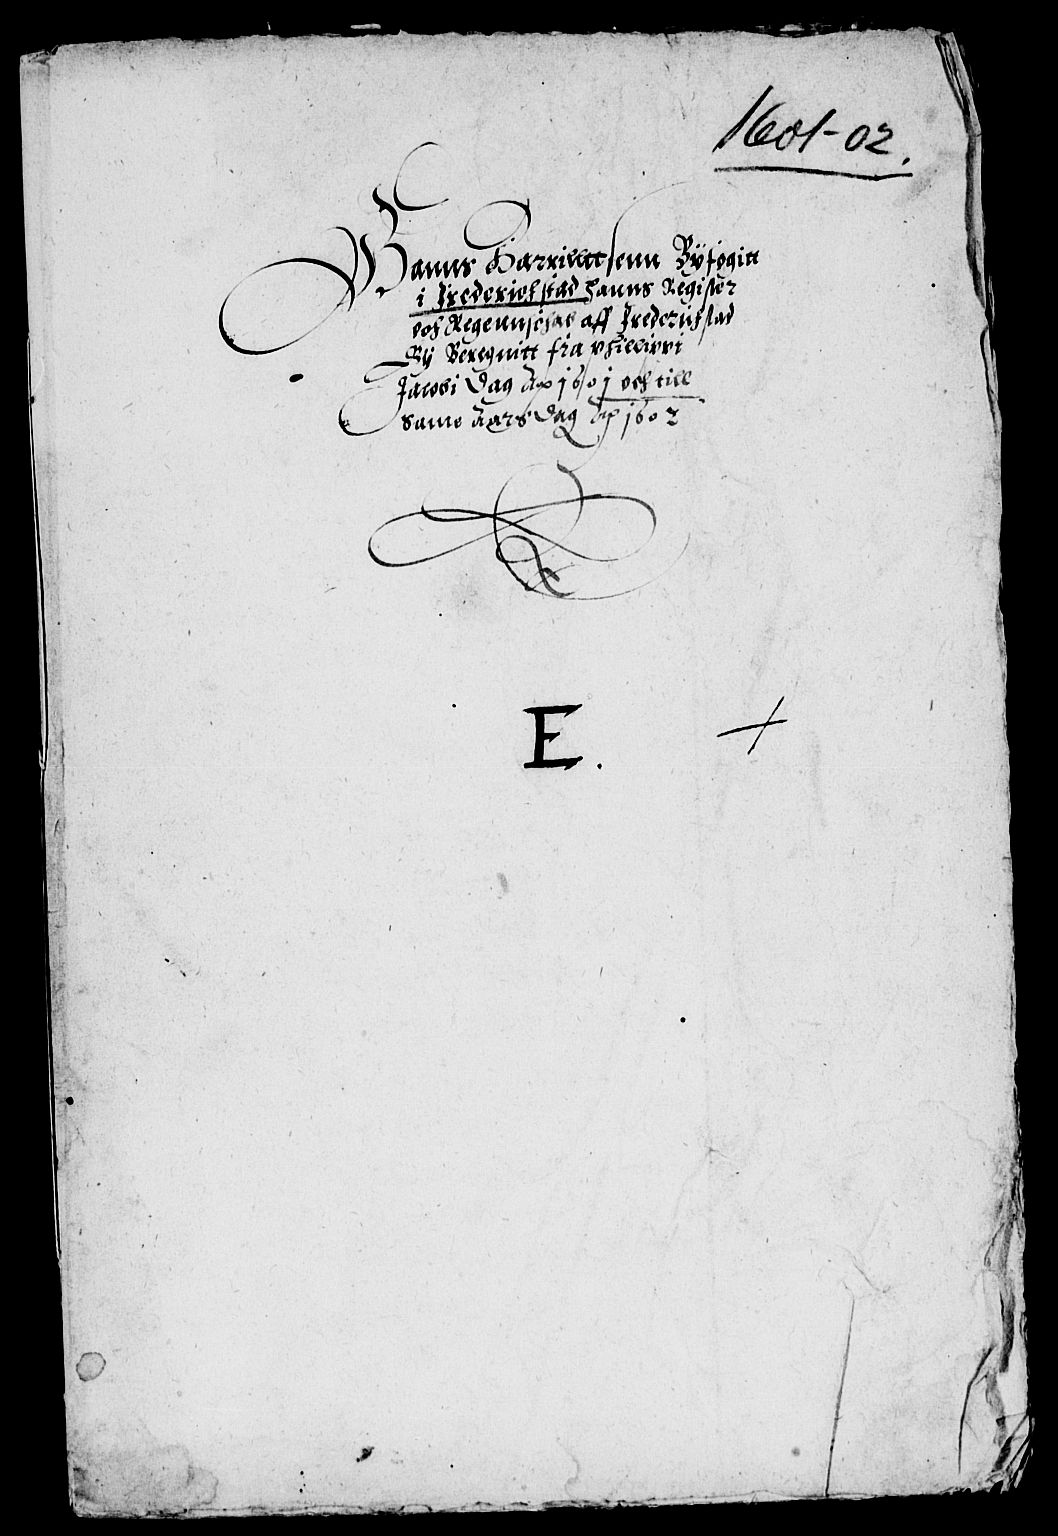 1601-02.
Hanns Harrilltt senn Byfogitt
i Frederichstad hanns Register
och Regennschab aff Frederichstad
By Beregnitt fra Philippi
Jacobi dag Ao 1601 och till
same Aars dag Ao 1602
E.